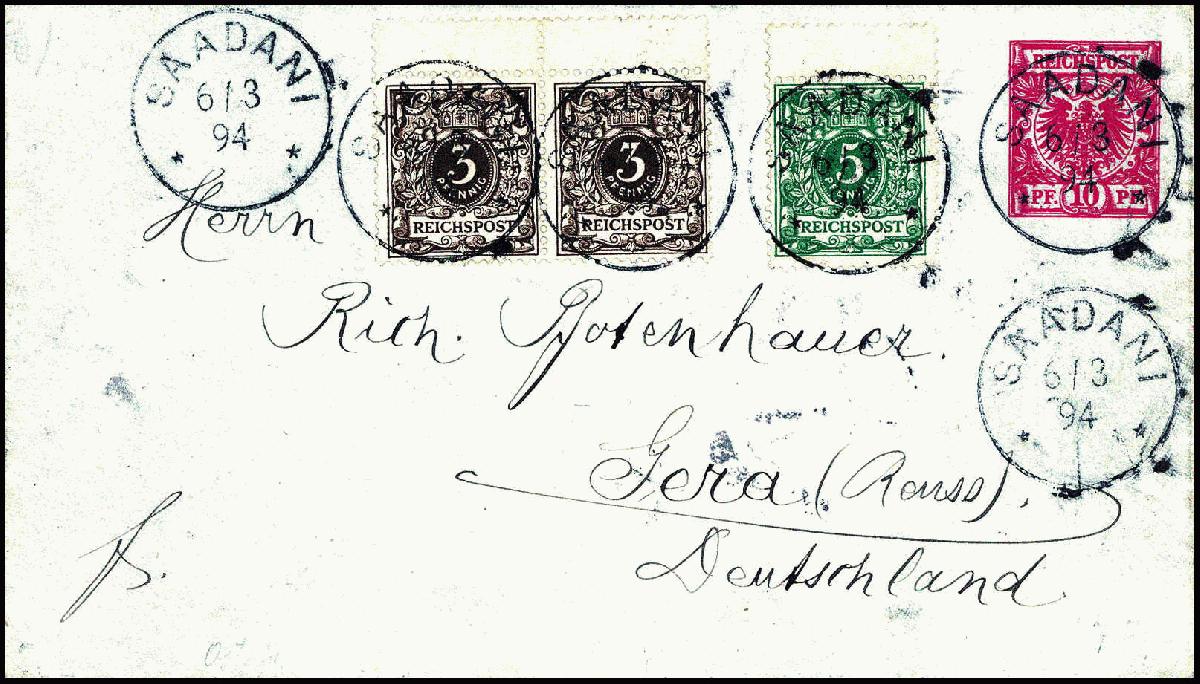 SAADANI
6/3
94
SAADANI
3
PFENNIG
REICHSPOST
SAADANI
3
PFENNIG
REICHSPOST
SAADANI
6/3
94
5
PFENNIG
REICHSPOST
REICHSPOST
SAADANI
6/3
94
PF. 10 PF.
Herrn
Rich. Potenhauer.
SAADANI
6/3
94
Gera (Reuss).
Deutschland